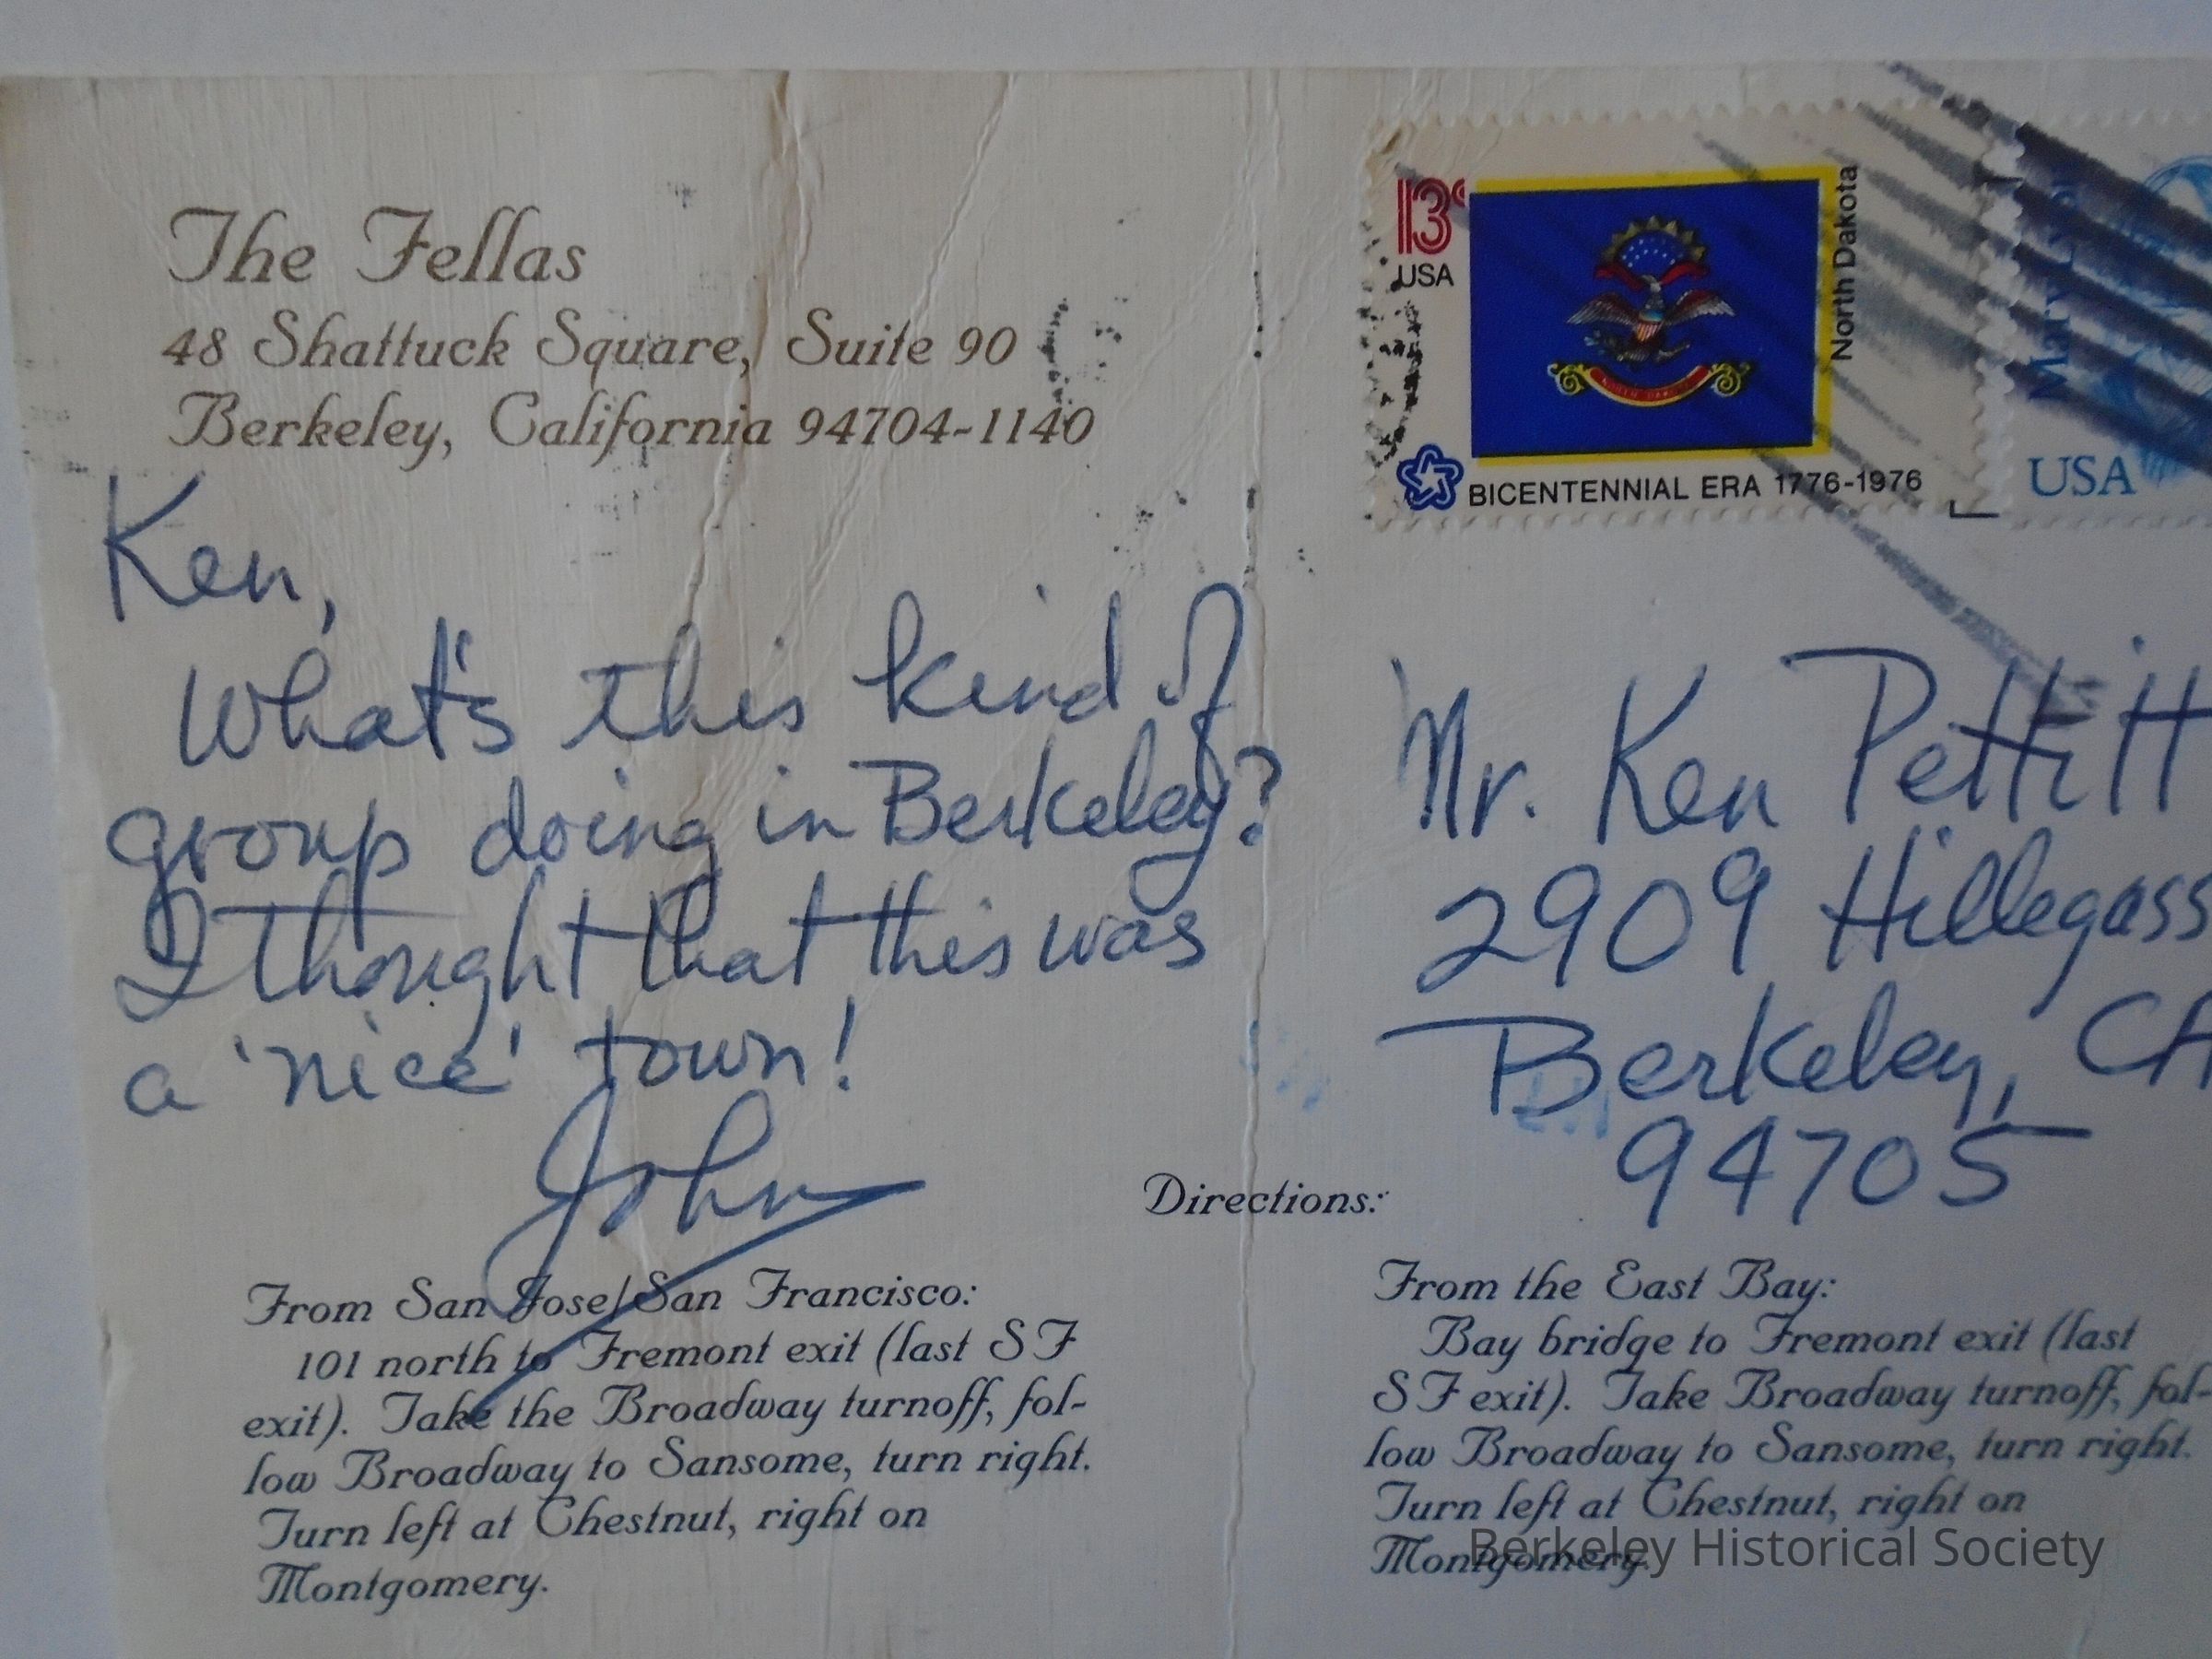 The Fellas
48 Shattuck Square, Suite 90
Berkeley, California 94704-1140
13c
USA
North Dakota
BICENTENNIAL ERA 1776-1976
USA
Ken,
What's this kind of
group doing in Berkeley?
I thought that this was
a 'nice' town!
John
Mr. Ken Pettitt
2909 Hillegass
Berkeley, CA
94705
Directions:
From San Jose/San Francisco:
101 north to Fremont exit (last SF
exit). Take the Broadway turnoff, fol-
low Broadway to Sansome, turn right.
Turn left at Chestnut, right on
Montgomery.
From the East Bay:
Bay bridge to Fremont exit (last
SF exit). Take Broadway turnoff, fol-
low Broadway to Sansome, turn right.
Turn left at Chestnut, right on
Montgomery.
Berkeley Historical Society